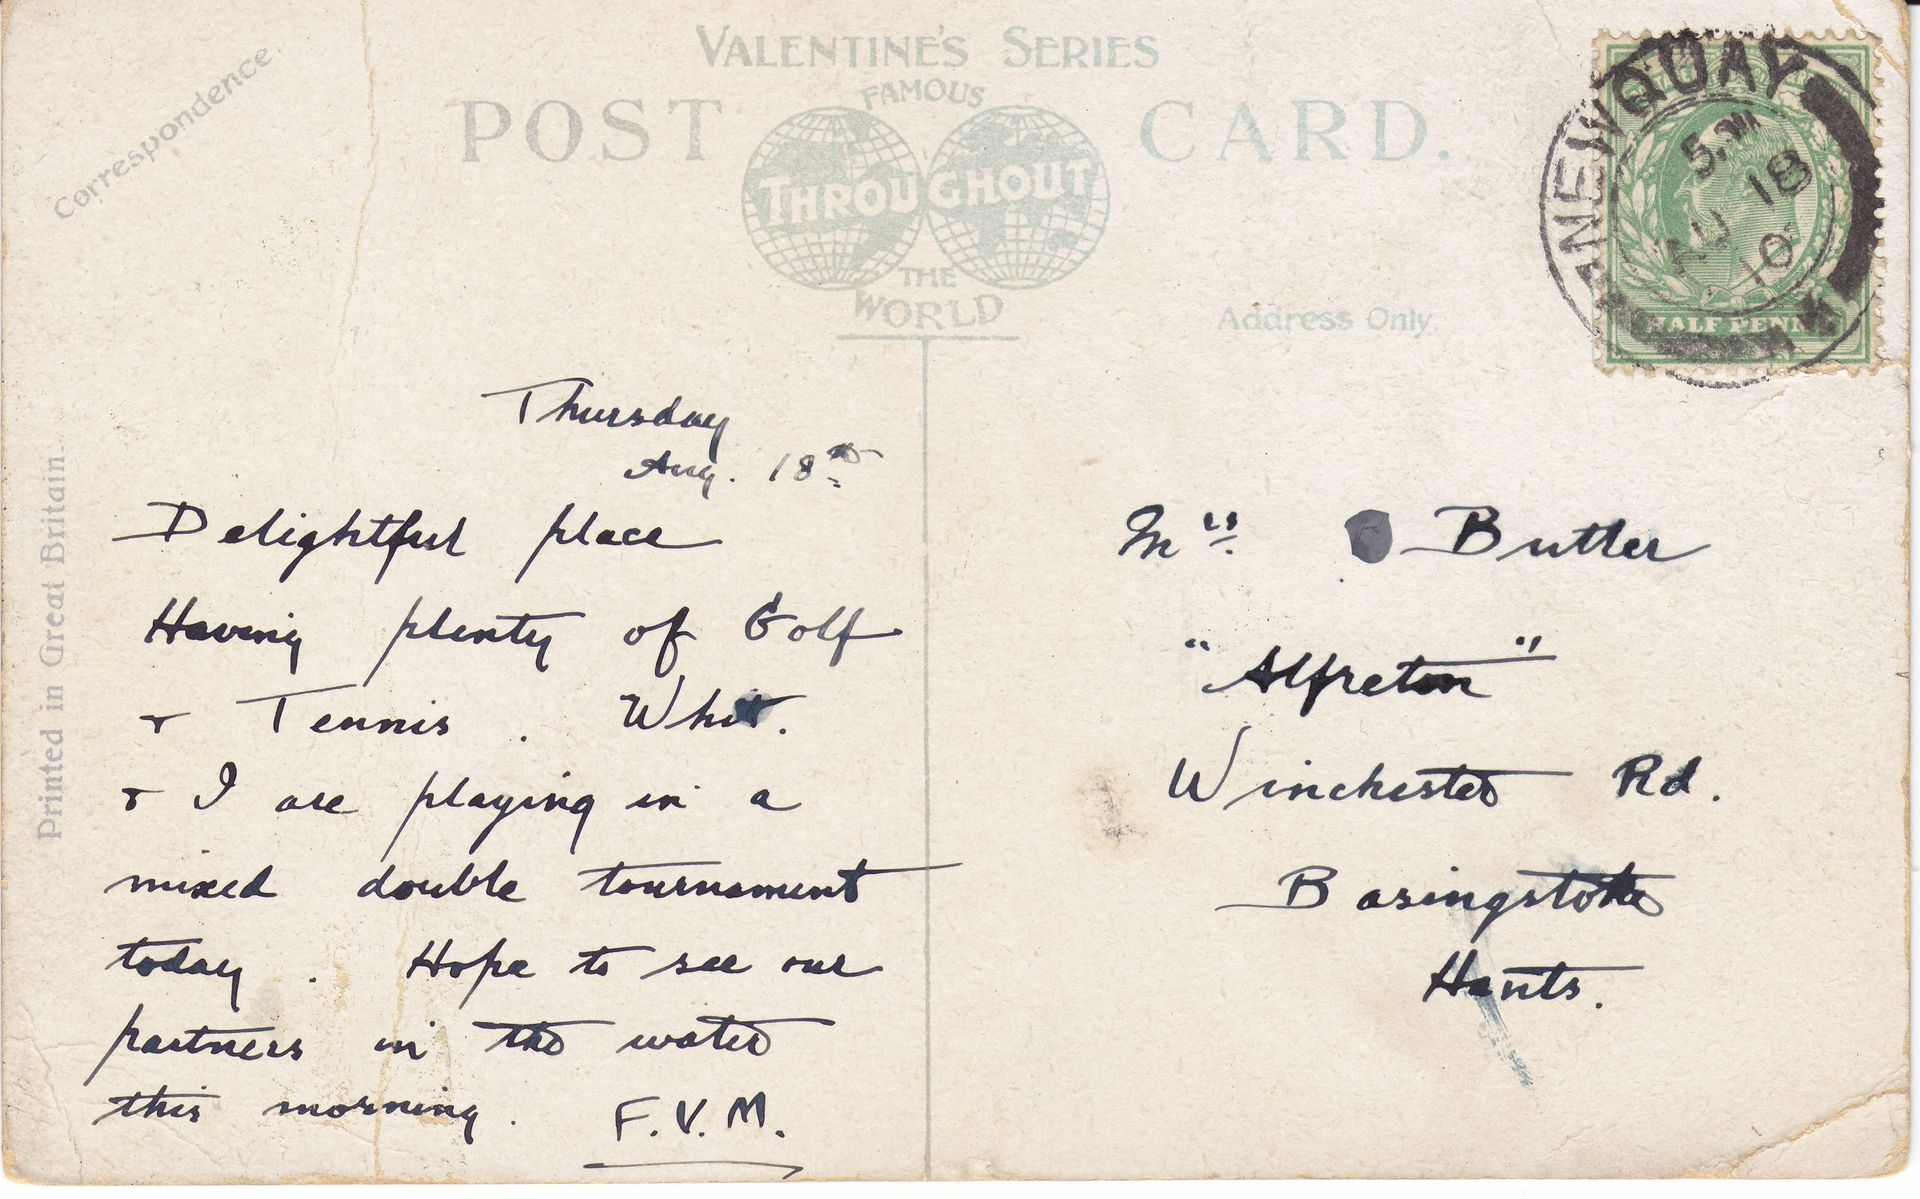 Correspondence
VALENTINE'S SERIES
POST CARD.
FAMOUS
THROUGHOUT
THE
WORLD
Address Only.
Printed in Great Britain.
NEWQUAY
5. PM
AU 18
10
HALFPENNY
Thursday
Aug. 18th
Delightful place
Having plenty of Golf
& Tennis. Whit.
& I are playing in a
mixed double tournament
today. Hope to see our
partners in the water
this morning.
F.V.M.
Mrs Butler
"Alfreton"
Winchester Rd.
Basingstoke
Hants.